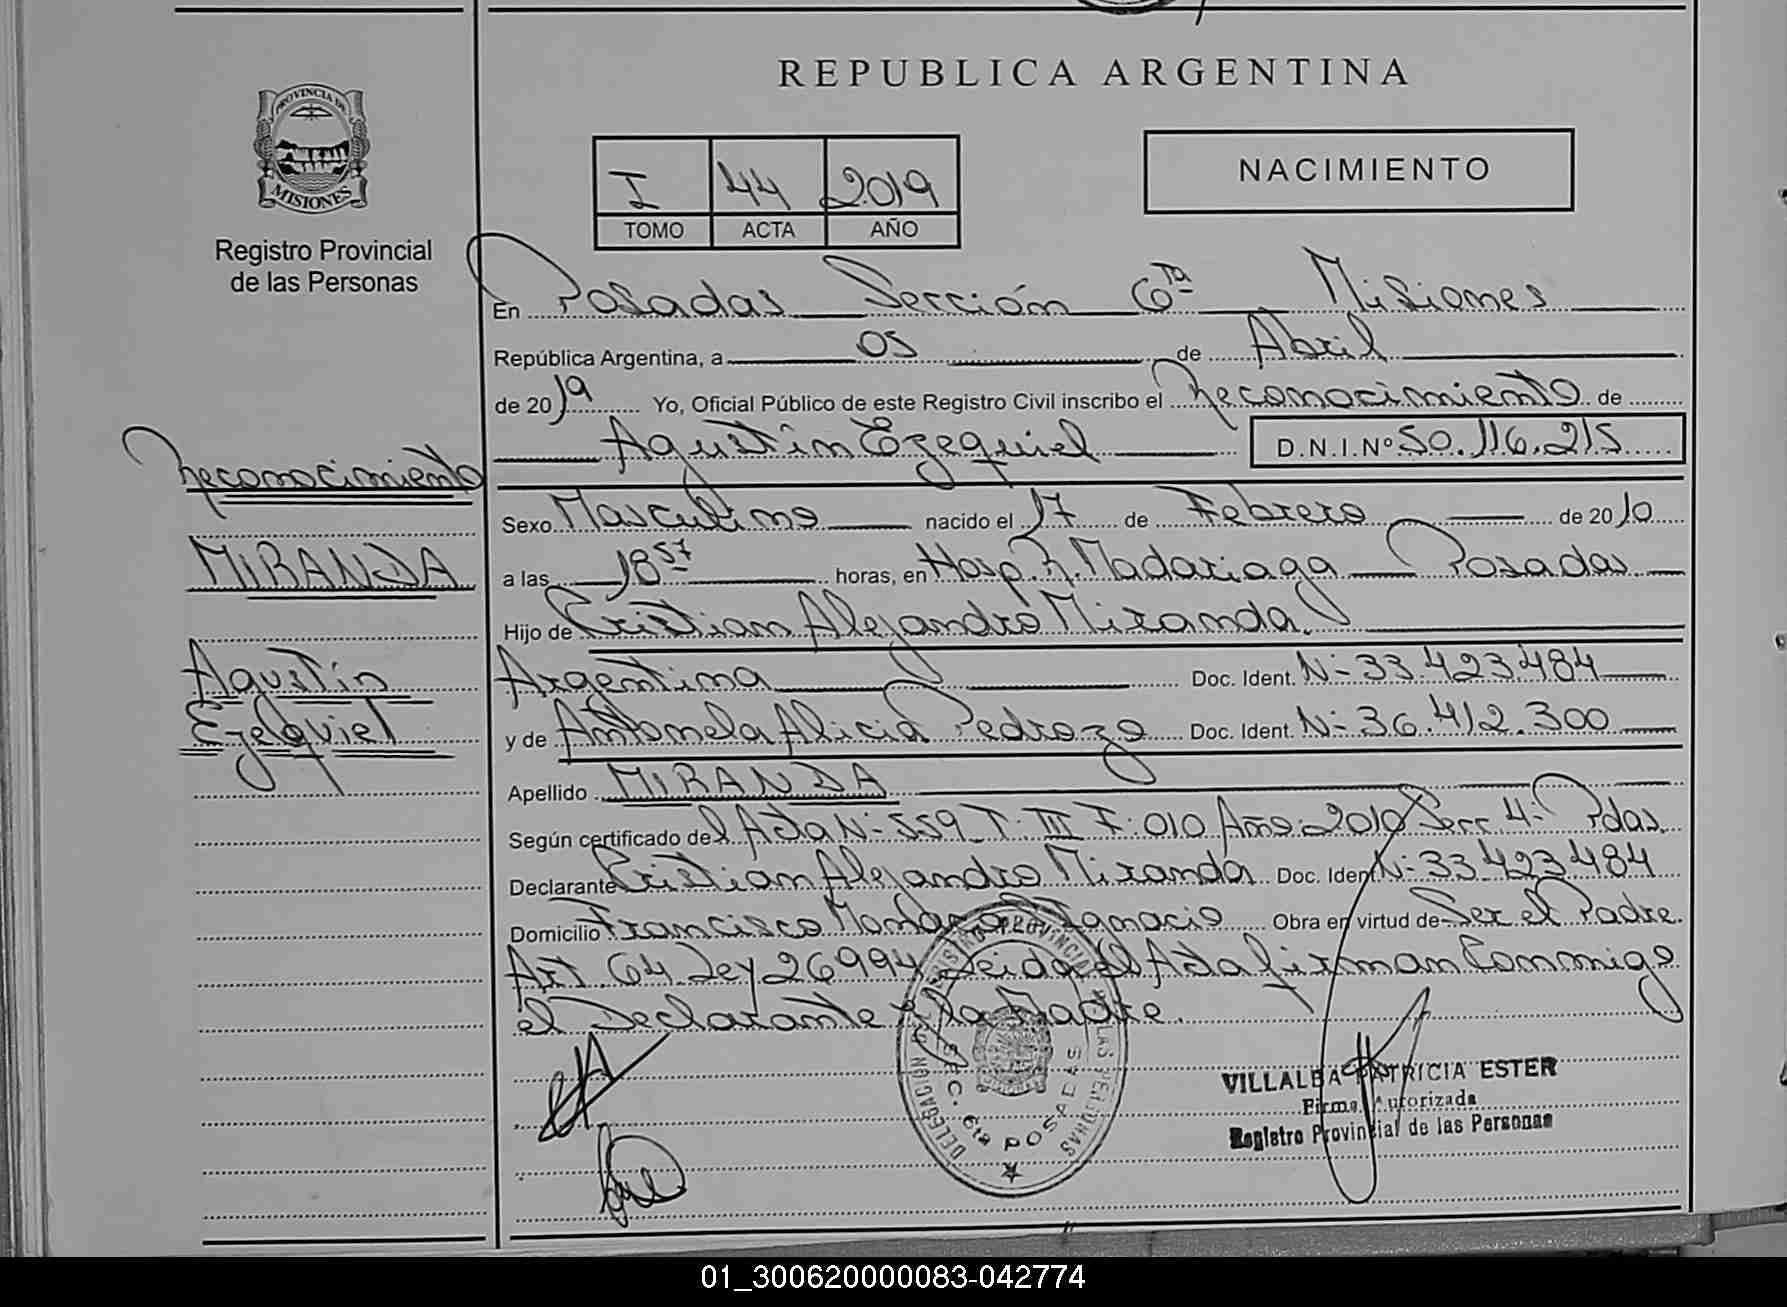 PROVINCIA DE
MISIONES
Registro Provincial
de las Personas
Reconocimiento
MIRANDA
Agustín
Ezequiel
REPUBLICA ARGENTINA
I 44 2019
TOMO ACTA AÑO
NACIMIENTO
En Posadas Sección 6ta Misiones
República Argentina, a 05 de Abril
de 2019 Yo, Oficial Público de este Registro Civil inscribo el Reconocimiento de
Agustín Ezequiel D.N.I.Nº 50.116.215
Sexo Masculino nacido el 17 de Febrero de 2010
a las 18 57 horas, en Hosp. R. Madariaga Posadas
Hijo de Cristian Alejandro Miranda.
Argentina Doc. Ident. Nº 33.423.484
y de Antonela Alicia Pedrozo Doc. Ident. Nº 36.412.300
Apellido MIRANDA
Según certificado del Acta Nº 559 T. III F. 010 Año 2010 Secc 4º Pdas.
Declarante Cristian Alejandro Miranda Doc. Ident. Nº 33 423 484
Domicilio Francisco Ignacio Obra en virtud de Ser el Padre.
Art. 64 Ley 26994 Leida el Acta firman Conmigo
el Declarante y la Madre.
DELEGACIÓN REGISTRO PROVINCIAL DE LAS PERSONAS
SEC. 6ta POSADAS
VILLALBA PATRICIA ESTER
Firma Autorizada
Registro Provincial de las Personas
01_300620000083-042774